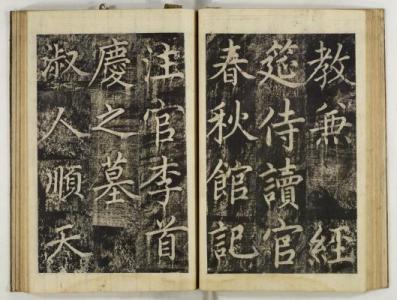 教兼 經
筵侍讀官
春秋館記
注官李首
慶之墓
淑人順天